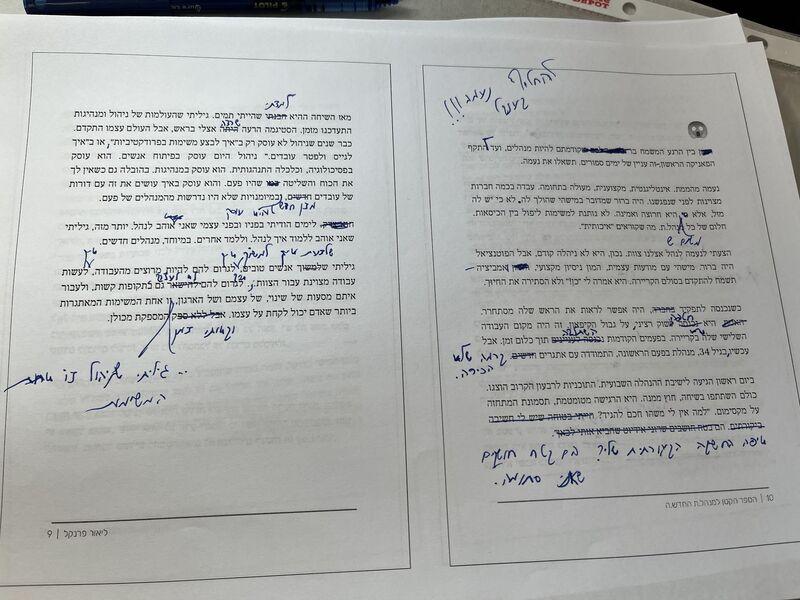 להחליף
נעמה!!!
בין הרגע המשמח קודמתם להיות מנהלים, ועד התקף
הפאניקה הראשון, זה עניין של ימים ספורים. תשאלו את נעמה.
נעמה מהממת. אינטליגנטית, מקצוענית, מעולה בתחומה. עבדה בכמה חברות
מצוינות לפני שנפגשנו. היה ברור שמדובר במישהי שהולך לה. לא כי יש לה
מזל, אלא כי היא חרוצה ואמינה. לא נותנת למשימות ליפול בין הכיסאות.
חלום של כל מנהל.ת. מה שקוראים "איכותית".
הצעתי לנעמה לנהל אצלנו צוות. נכון, היא לא ניהלה קודם, אבל הפוטנציאל
היה ברור. מישהי עם מודעות עצמית, המון ניסיון מקצועי, אמביציה –
תשמח להתקדם בסולם הקריירה. היא אמרה לי "כן!" ולא הסתירה את החיוך.
כשנכנסה לתפקיד בחברה, היה אפשר לראות את הראש שלה מסתחרר.
היא שוק רציני, על גבול הקיפאון, זה היה מקום העבודה
השלישי שלה בקריירה. בפעמים הקודמות נכנסה לעניינים תוך כלום זמן. אבל
עכשיו, בגיל 34, מנהלת בפעם הראשונה, התמודדה עם אתגרים חדשים.
שלא הכירה.
ביום ראשון הגיעה לישיבת ההנהלה השבועית. התוכניות לרבעון הקרוב הוצגו.
כולם השתתפו בשיחה, חוץ ממנה. היא הרגישה מטומטמת, תסמונת המתחזה
על מקסימום. "למה אין לי משהו חכם להגיד? הייתי בטוחה שיש לי חשיבה
ביקורתית. הם בטח חושבים שרוני אידיוט שהביא אותי לכאן"
איפה החשיבה הביקורתית שלי? הם בטח חושבים
שאני סתומה.
10 | הספר הקטן למנהלת החדש.ה
למדתי
מאז השיחה ההיא הבנתי שהייתי תמים. גיליתי שהעולמות של ניהול ומנהיגות
התעדכנו מזמן. הסטיגמה הרעה היתה אצלי בראש, אבל העולם עצמו התקדם.
כבר שנים שניהול לא עוסק רק ב"איך לבצע משימות בפרודקטיביות", או ב"איך
לגייס ולפטר עובדים." ניהול היום עוסק בפיתוח אנשים. הוא עוסק
בפסיכולוגיה, וכלכלה התנהגותית. הוא עוסק במנהיגות. בהובלה גם כשאין לך
את הכוח והשליטה שהיו פעם. והוא עוסק באיך עושים את זה עם דורות
של עובדים חדשים, ובמיומנויות שלא היו נדרשות מהמנהלים של פעם.
לימים הודיתי בפניו ובפני עצמי שאני אוהב לנהל. יותר מזה, גיליתי
שאני אוהב ללמוד איך לנהל, וללמד אחרים. במיוחד, מנהלים חדשים.
גיליתי שלמשוך אנשים טובים, לגרום להם להיות מרוצים מהעבודה, לעשות
עבודה מצוינת עבור הצוות, לגרום להם להישאר גם בתקופות קשות, ולעבור
איתם מסעות של שינוי, של עצמם ושל הארגון, זו אחת המשימות המאתגרות
ביותר שאדם יכול לקחת על עצמו. אבל ללא ספק המספקת מכולן.
.. גיליתי שניהול זו אחת
המשימות
ליאור פרנקל | 9